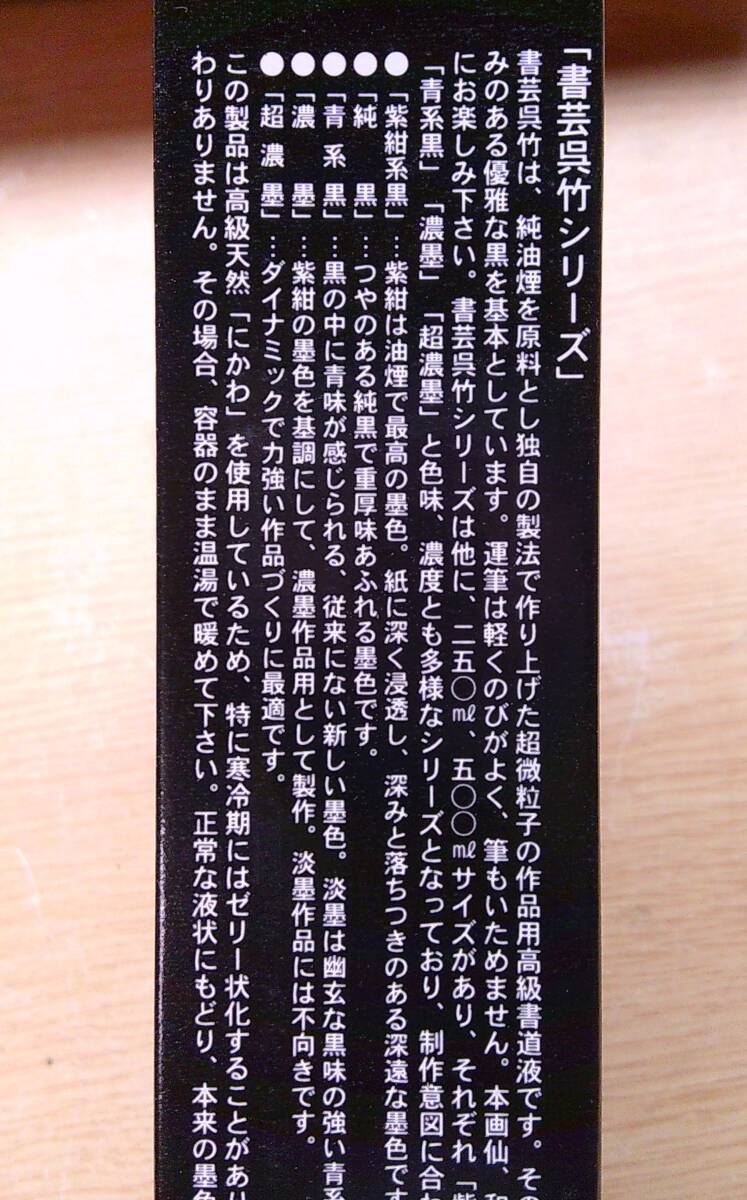 「書芸呉竹シリーズ」
書芸呉竹は、純油煙を原料とし独自の製法で作り上げた超微粒子の作品用高級書道液です。その
みのある優雅な黒を基本としています。運筆は軽くのびがよく、筆もいためません。本画仙、和
にお楽しみ下さい。書芸呉竹シリーズは他に、二五〇㎖、五〇〇㎖サイズがあり、それぞれ「紫
「青系黒」「濃墨」「超濃墨」と色味、濃度とも多様なシリーズとなっており、制作意図に合わ
●「紫紺系黒」…紫紺は油煙で最高の墨色。紙に深く浸透し、深みと落ちつきのある深遠な墨色です
●「純黒」…つやのある純黒で重厚味あふれる墨色です。
●「青系黒」…黒の中に青味が感じられる、従来にない新しい墨色。淡墨は幽玄な黒味の強い青系
●「濃墨」…紫紺の墨色を基調にして、濃墨作品用として製作。淡墨作品には不向きです。
●「超濃墨」…ダイナミックで力強い作品づくりに最適です。
この製品は高級天然「にかわ」を使用しているため、特に寒冷期にはゼリー状化することがあり
わりありません。その場合、容器のまま温湯で暖めて下さい。正常な液状にもどり、本来の墨色